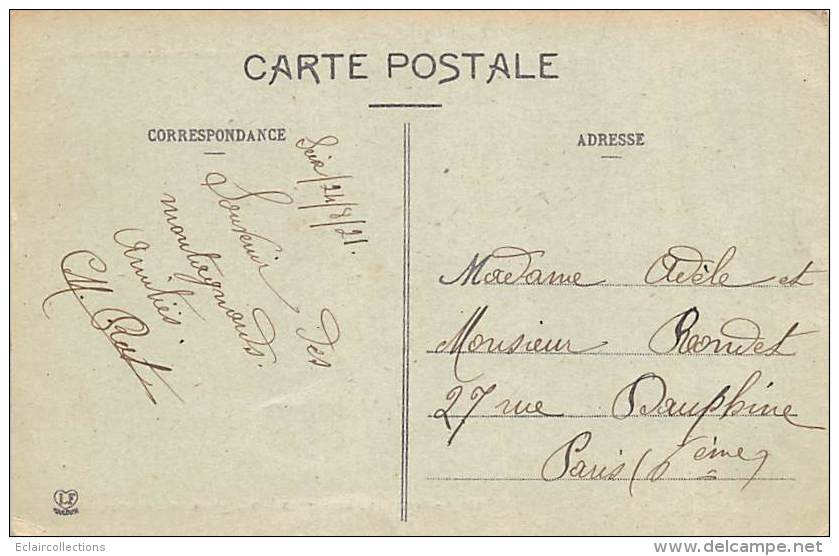 CARTE POSTALE
CORRESPONDANCE
ADRESSE
Seix/24/8/21.
Souvenir des
montagnards.
Amitiés.
Madame Adèle et
Monsieur Rondet
27 rue Dauphine
Paris (6ème)
LF
TOULOUSE
Eclaircollections
www.delcampe.net